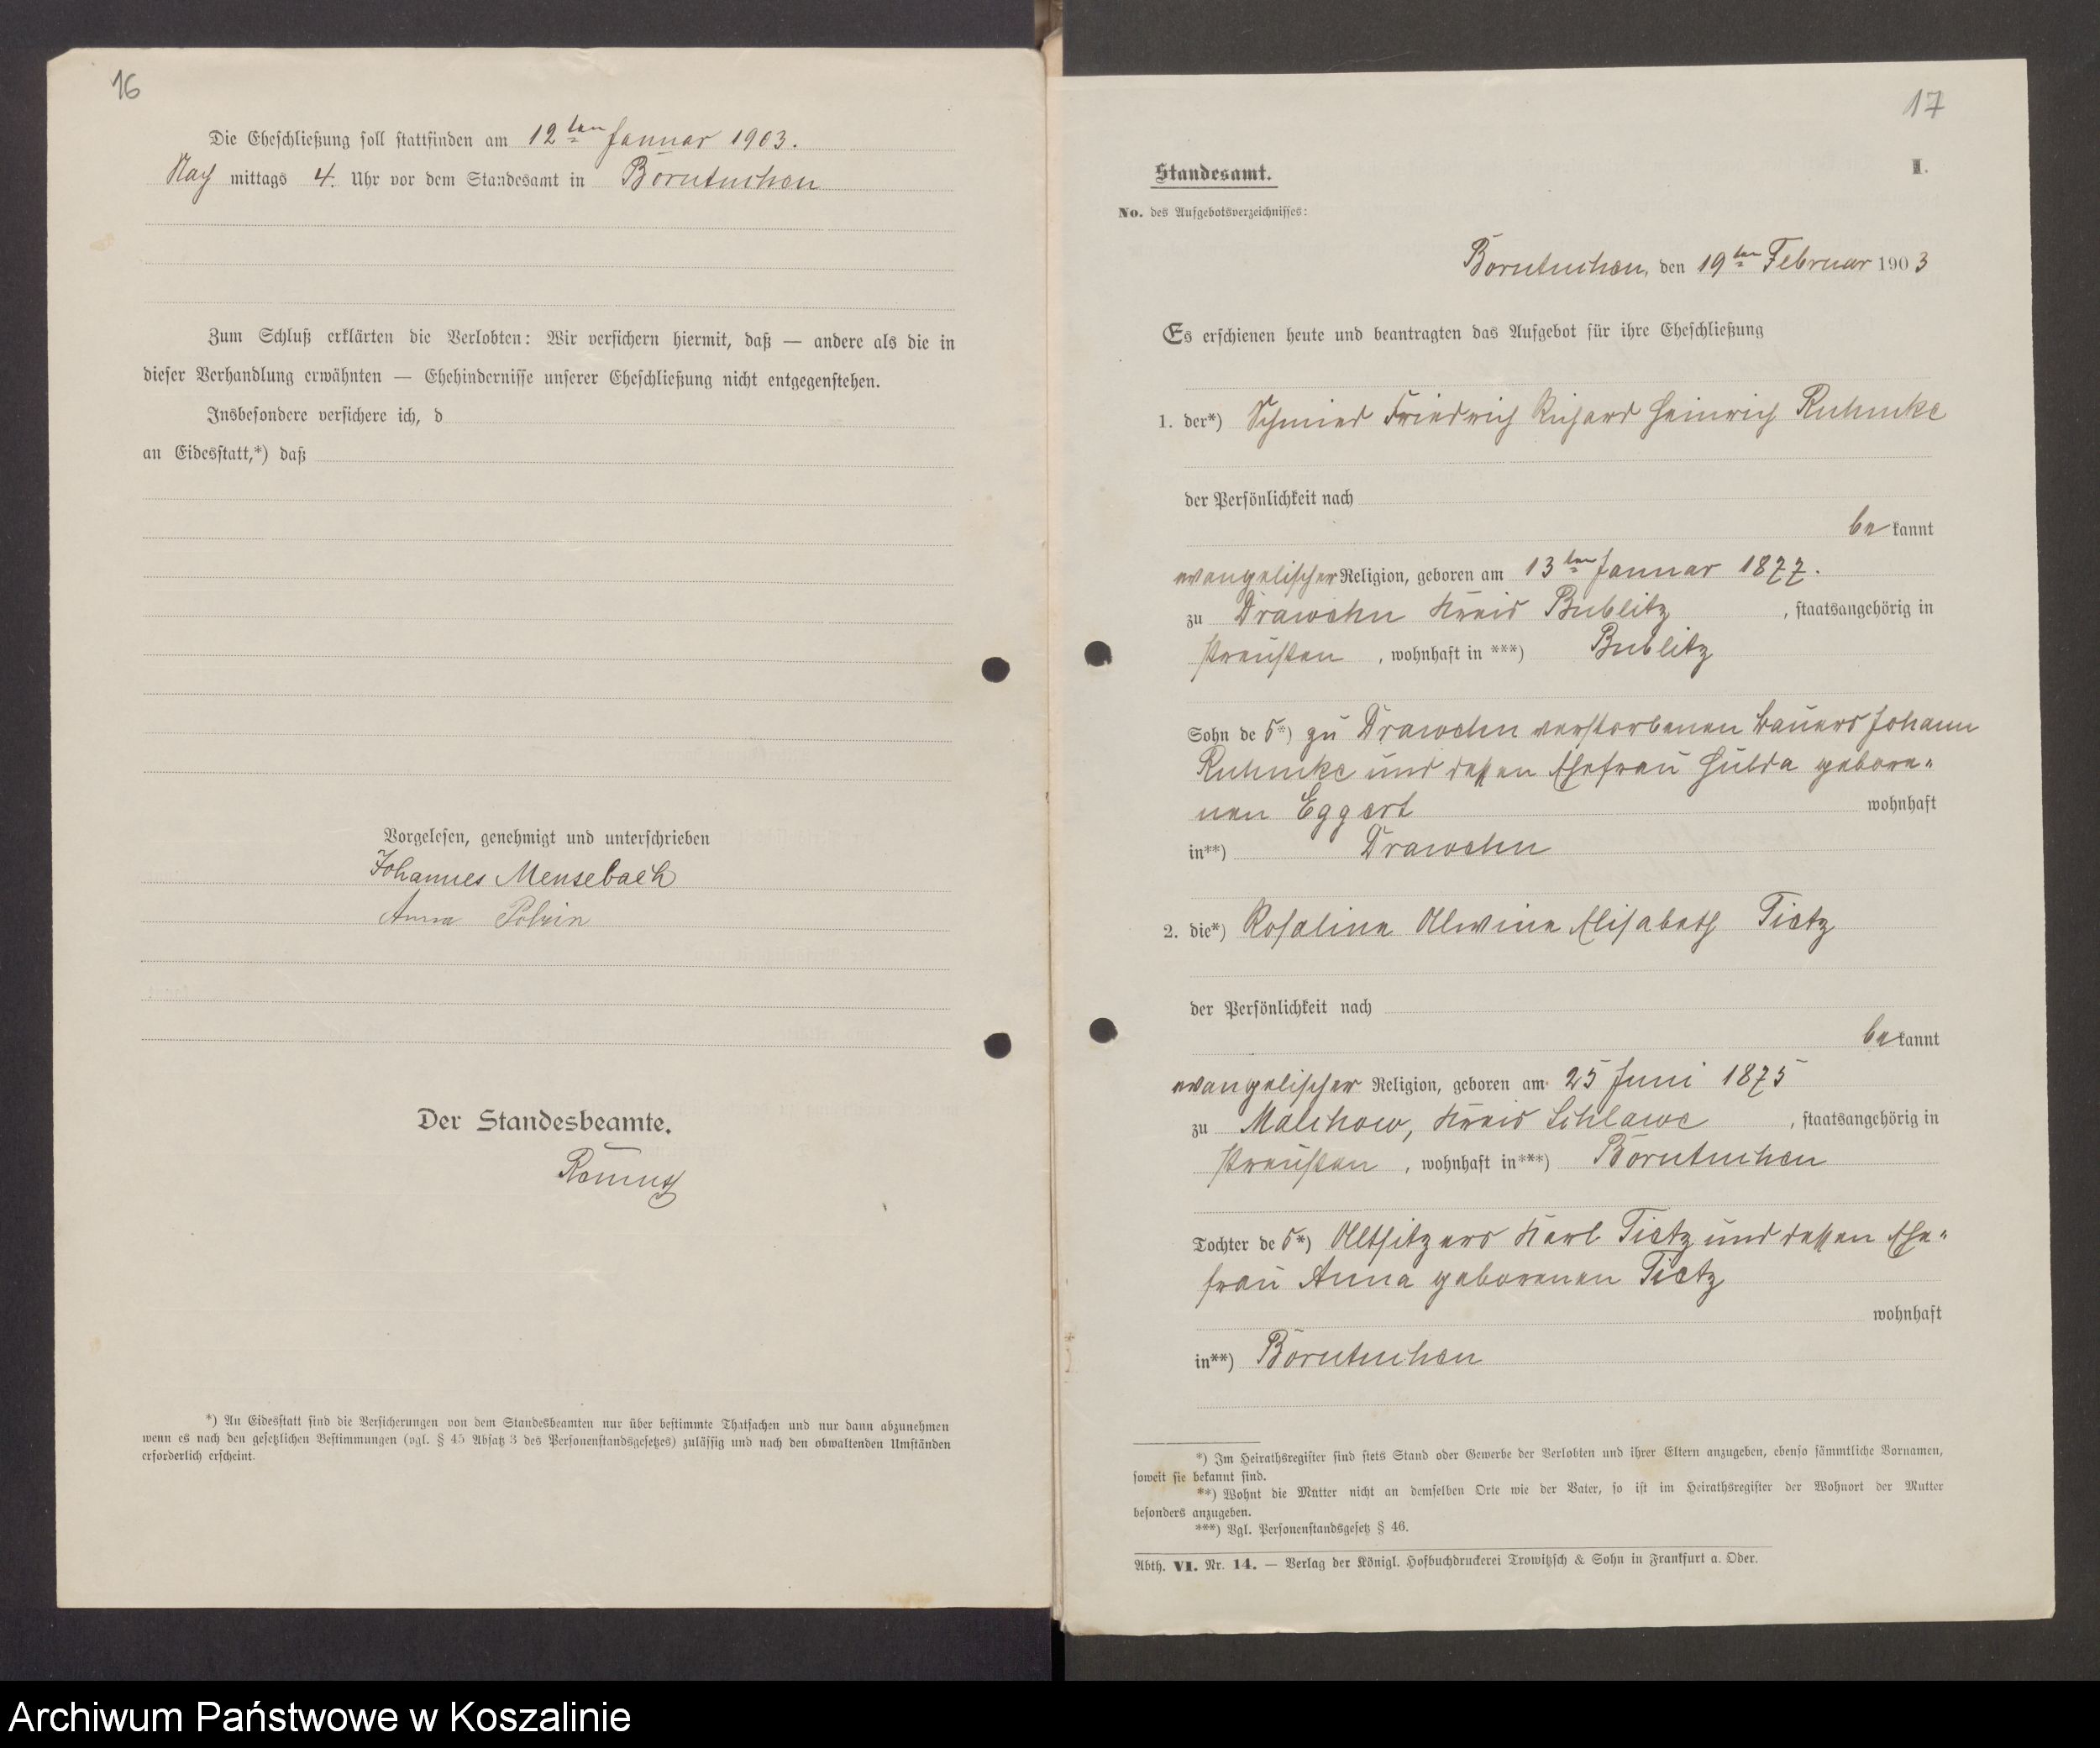 16
Die Eheschließung soll stattfinden am 12ten Januar 1903.
Nach mittags 4. Uhr vor dem Standesamt in Borntuchen
Zum Schluß erklärten die Verlobten: Wir versichern hiermit, daß — andere als die in
dieser Verhandlung erwähnten — Ehehindernisse unserer Eheschließung nicht entgegenstehen.
Insbesondere versichere ich, d
an Eidesstatt,*) daß
Vorgelesen, genehmigt und unterschrieben
Johannes Mensebach
Anna
Der Standesbeamte.
*) An Eidesstatt sind die Versicherungen von dem Standesbeamten nur über bestimmte Thatsachen und nur dann abzunehmen
wenn es nach den gesetzlichen Bestimmungen (vgl. § 45 Absatz 3 des Personenstandsgesetzes) zulässig und nach den obwaltenden Umständen
erforderlich erscheint.
17
Standesamt.
I.
No. des Aufgebotsverzeichnisses:
Borntuchen, den 19ten Februar 1903
Es erschienen heute und beantragten das Aufgebot für ihre Eheschließung
1. der*) Schmied Friedrich Richard Heinrich Ruhnke
der Persönlichkeit nach
be kannt
evangelischer Religion, geboren am 13ten Januar 1877.
zu Drawehn Kreis Bublitz , staatsangehörig in
Preußen , wohnhaft in ***) Bublitz
Sohn des*) zu Drawehn verstorbenen Bauers Johann
Ruhnke und dessen Ehefrau Hulda gebore-
nen Eggert wohnhaft
in**) Drawehn
2. die*) Rosaline Alwine Elisabeth Tietz
der Persönlichkeit nach
be kannt
evangelischer Religion, geboren am 25 Juni 1875
zu Malchow, Kreis Schlawe , staatsangehörig in
Preußen , wohnhaft in***) Borntuchen
Tochter des*) Altsitzers Karl Tietz und dessen Ehe-
frau Anna geborenen Tietz
wohnhaft
in**) Borntuchen
*) Im Heirathsregister sind stets Stand oder Gewerbe der Verlobten und ihrer Eltern anzugeben, ebenso sämmtliche Vornamen,
soweit sie bekannt sind.
**) Wohnt die Mutter nicht an demselben Orte wie der Vater, so ist im Heirathsregister der Wohnort der Mutter
besonders anzugeben.
***) Vgl. Personenstandsgesetz § 46.
Abth. VI. Nr. 14. — Verlag der Königl. Hofbuchdruckerei Trowitzsch & Sohn in Frankfurt a. Oder.
Archiwum Państwowe w Koszalinie